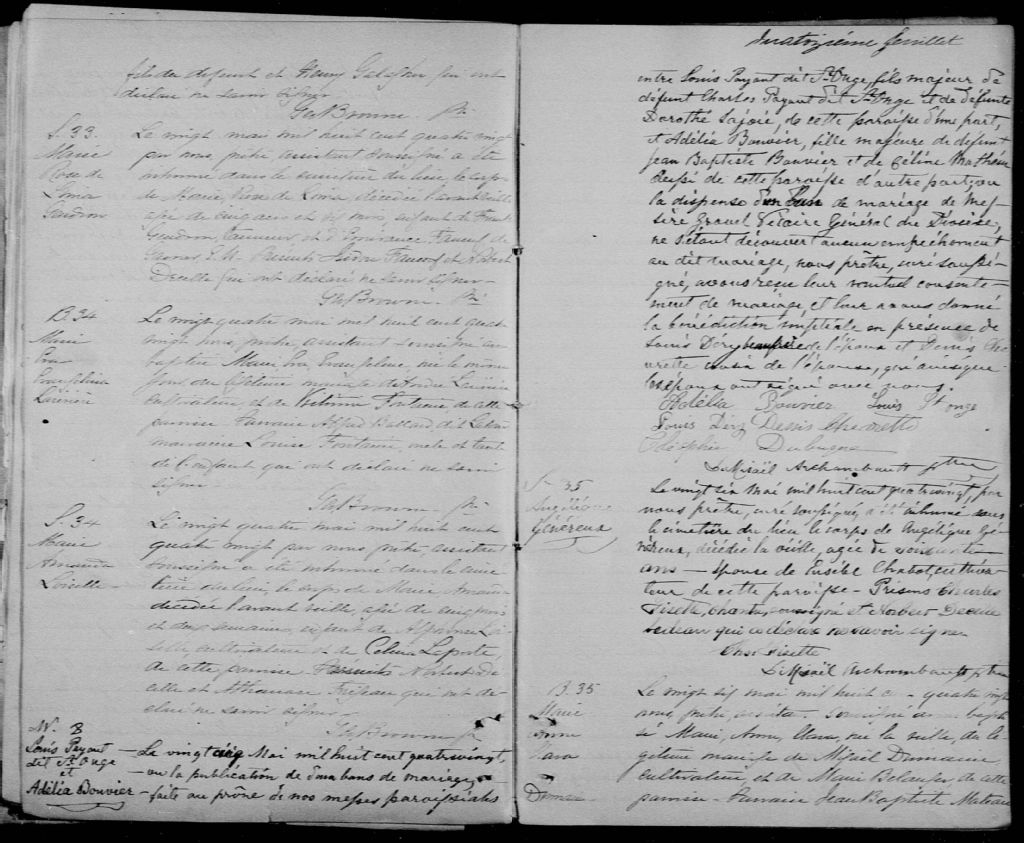 fils du défunt et Henry qui ont
déclaré ne savoir signer
Geo Brown Ptr
S. 33.
Marie
Rose de
Lima
Gendron
Le vingt mai mil huit cent quatre vingt
par nous prêtre, assistant soussigné a été
inhumé dans le cimetière du lieu le corps
de Marie, Rose de Lima, décédée l'avant veille
agée de cinq ans et dix mois, enfant de
Gendron, et d'
Présents et Norbert
Decelle qui ont déclaré ne savoir signer
Geo Brown. Ptr
B. 34
Marie
Eva
Le vingt quatre mai mil huit cent quatre
vingt nous, prêtre, assistant soussigné avons
baptisé Marie, Eva, née le même
jour du légitime mariage de
cultivateur, et de Fontaine de cette
paroisse Parrain Alfred
marraine Louise Fontaine, oncle et tante
de l'enfant qui ont déclaré ne savoir
signer
Geo Brown, Ptr
S. 34
Marie
Amanda
Loiselle
Le vingt quatre mai mil huit cent
quatre vingt par nous prêtre, assistant
soussigné a été inhumé dans le cime-
tière du lieu, le corps de Marie Amanda
décédée l'avant veille, agée de cinq mois
et semaines, enfant de Alphonse Loi-
selle cultivateur et de Celina Laporte,
de cette paroisse Présents Norbert De-
celle et Athanase qui ont dé-
claré ne savoir signer
Geo Brown Ptr
M. 8
Louis Payant
dit St Onge
et
Adélia Bouvier
Le vingt cinq Mai mil huit cent quatrevingt,
vu la publication de deux bans de mariage,
faite au prône de nos messes paroissiales
Quatorzième feuillet
entre Louis Payant dit St Onge, fils majeur de
défunt Charles Payant dit St Onge et de défunte
Dorothé Lajoie, de cette paroisse d'une part,
et Adélia Bouvier, fille majeure de défunt
Jean Baptiste Bouvier et de Céline Mathieu
aussi de cette paroisse d'autre part, vu
la dispense d'un ban de mariage de Mes-
sire Gravel Vicaire Général du Diocèse,
ne s'étant découvert aucun empêchement
au dit mariage, nous prêtre, curé soussi-
gné, avons reçu leur mutuel consente-
ment de mariage, et leur avons donné
la bénédiction nuptiale en présence de
Louis Dery beaupère de l'époux et Denis Che-
vrette cousin de l'épouse, qui ainsi que
les époux ont signé avec nous.
Adélia Bouvier Louis St onge
Louis Dery Denis Chevrette
L. Misaël Archambault ptre
S. 35
Angélique
Généreux
Le vingt six Mai mil huit cent quatrevingt, par
nous prêtre, curé soussigné, a été inhumé dans
le cimetière du lieu le corps de Angélique Gé-
néreux, décédée la veille, agée de
ans — épouse de Eusèbe Chabot, cultiva-
teur de cette paroisse — Présents Charles
Fisette, chantre, soussigné et Norbert Decelle
bedeau qui a déclaré ne savoir signer
Chs Fisette
L. Misaël Archambault ptre
B. 35
Marie
Anna
Clara
Le vingt six mai mil huit cent quatre vingt
nous, prêtre, assistant soussigné avons bapti-
sé Marie, Anna, Clara, née la veille, du lé-
gitime mariage de Misael
cultivateur, et de Marie Belanger de cette
paroisse — Parrain Jean Baptiste